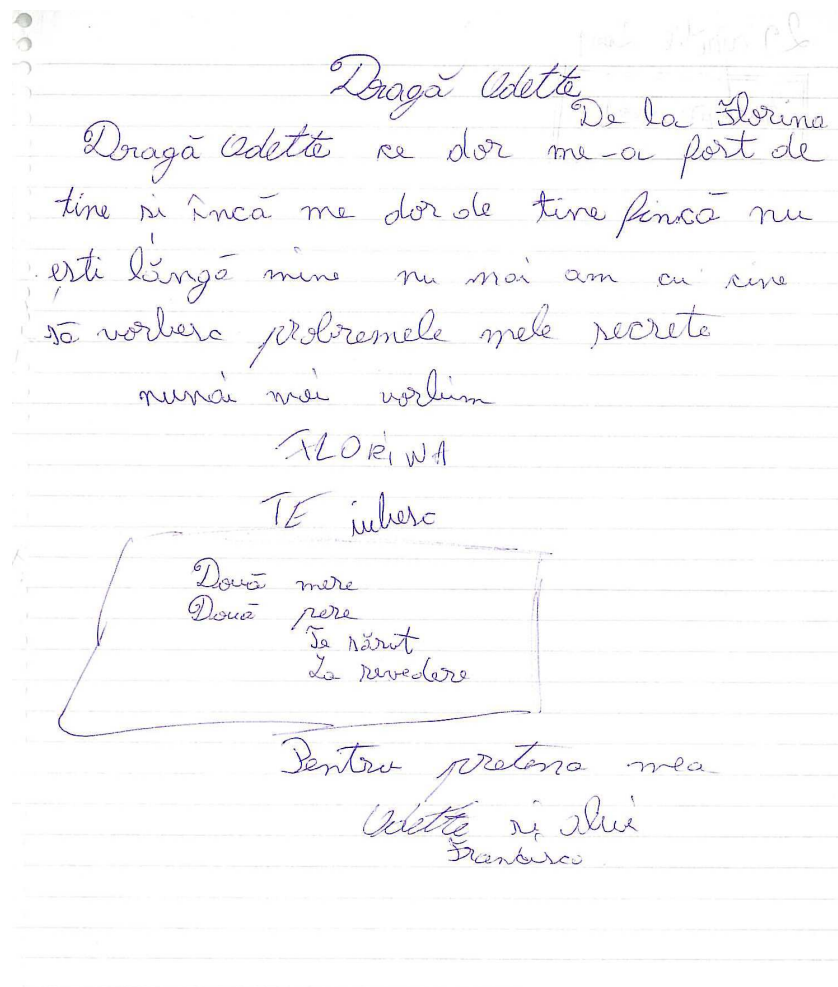 Dragă Odette
De la Florina
Dragă Odette ce dor me-a fost de
tine și încă me dor de tine fincă nu
ești lăngă mine nu mai am cu cine
să vorbesc probremele mele secrete
nunai mai vorbim
FLORINA
TE iubesc
Două mere
Două pere
Te sărut
La revedere
Pentru pretena mea
Odette și alui
Francisco